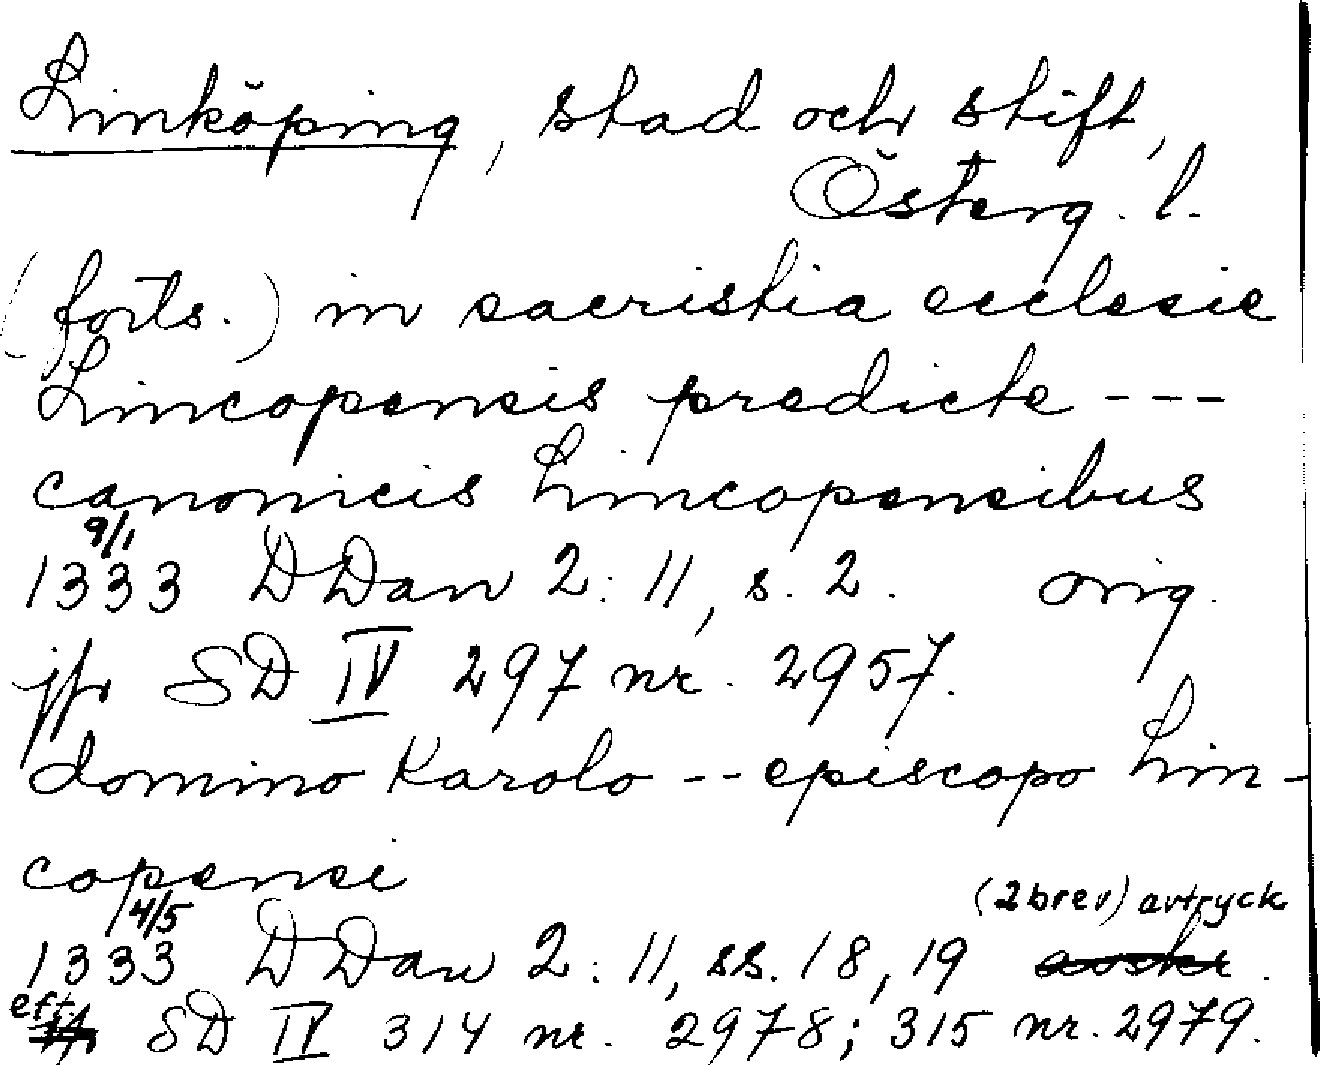 Linköping, stad och stift,
Österg. l.
(forts.) in sacristia ecclesie
Lincopensis predicte ---
canonicis Lincopensibus
9/1
1333 DDan 2:11, s. 2. orig.
jfr SD IV 297 nr. 2957.
domino Karolo -- episcopo Lin-
copensi
14/5 (2 brev) avtryck
1333 DDan 2:11, ss. 18, 19 avskr.
eft.
jfr SD IV 314 nr. 2978; 315 nr. 2979.